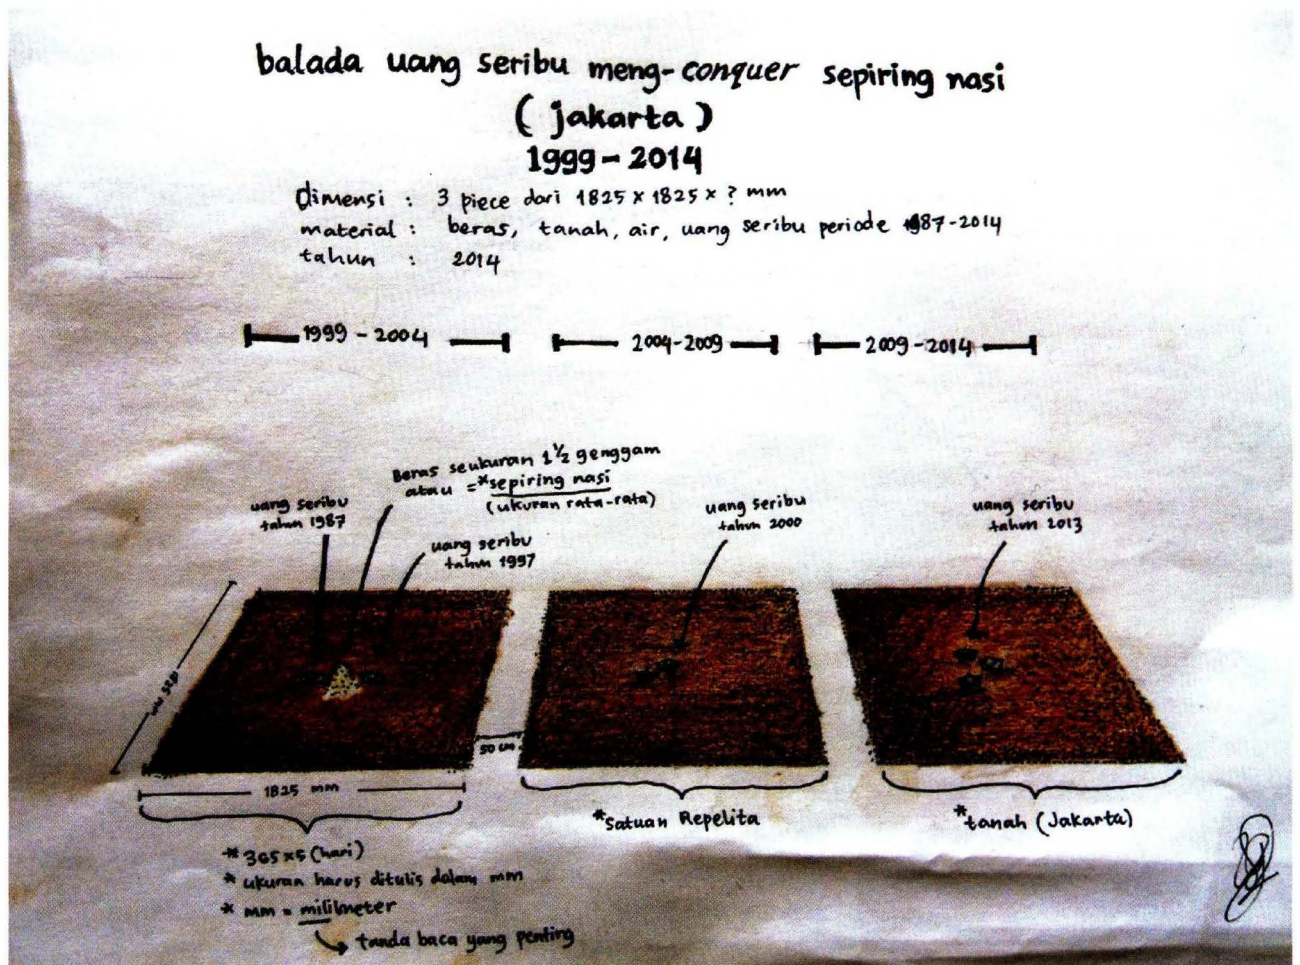 balada uang seribu meng-conquer sepiring nasi
( jakarta )
1999 - 2014
Dimensi : 3 piece dari 1825 x 1825 x ? mm
material : beras, tanah, air, uang seribu periode 1987-2014
tahun : 2014
1999 - 2004
2004-2009
2009-2014
uang seribu
tahun 1987
Beras seukuran 1 1/2 genggam
atau = *sepiring nasi
(ukuran rata-rata)
uang seribu
tahun 1997
uang seribu
tahun 2000
uang seribu
tahun 2013
50 cm
1825 mm
* 365x5 (hari)
* ukuran harus ditulis dalam mm
* mm = mililmeter
tanda baca yang penting
*Satuan Repelita
*tanah (Jakarta)